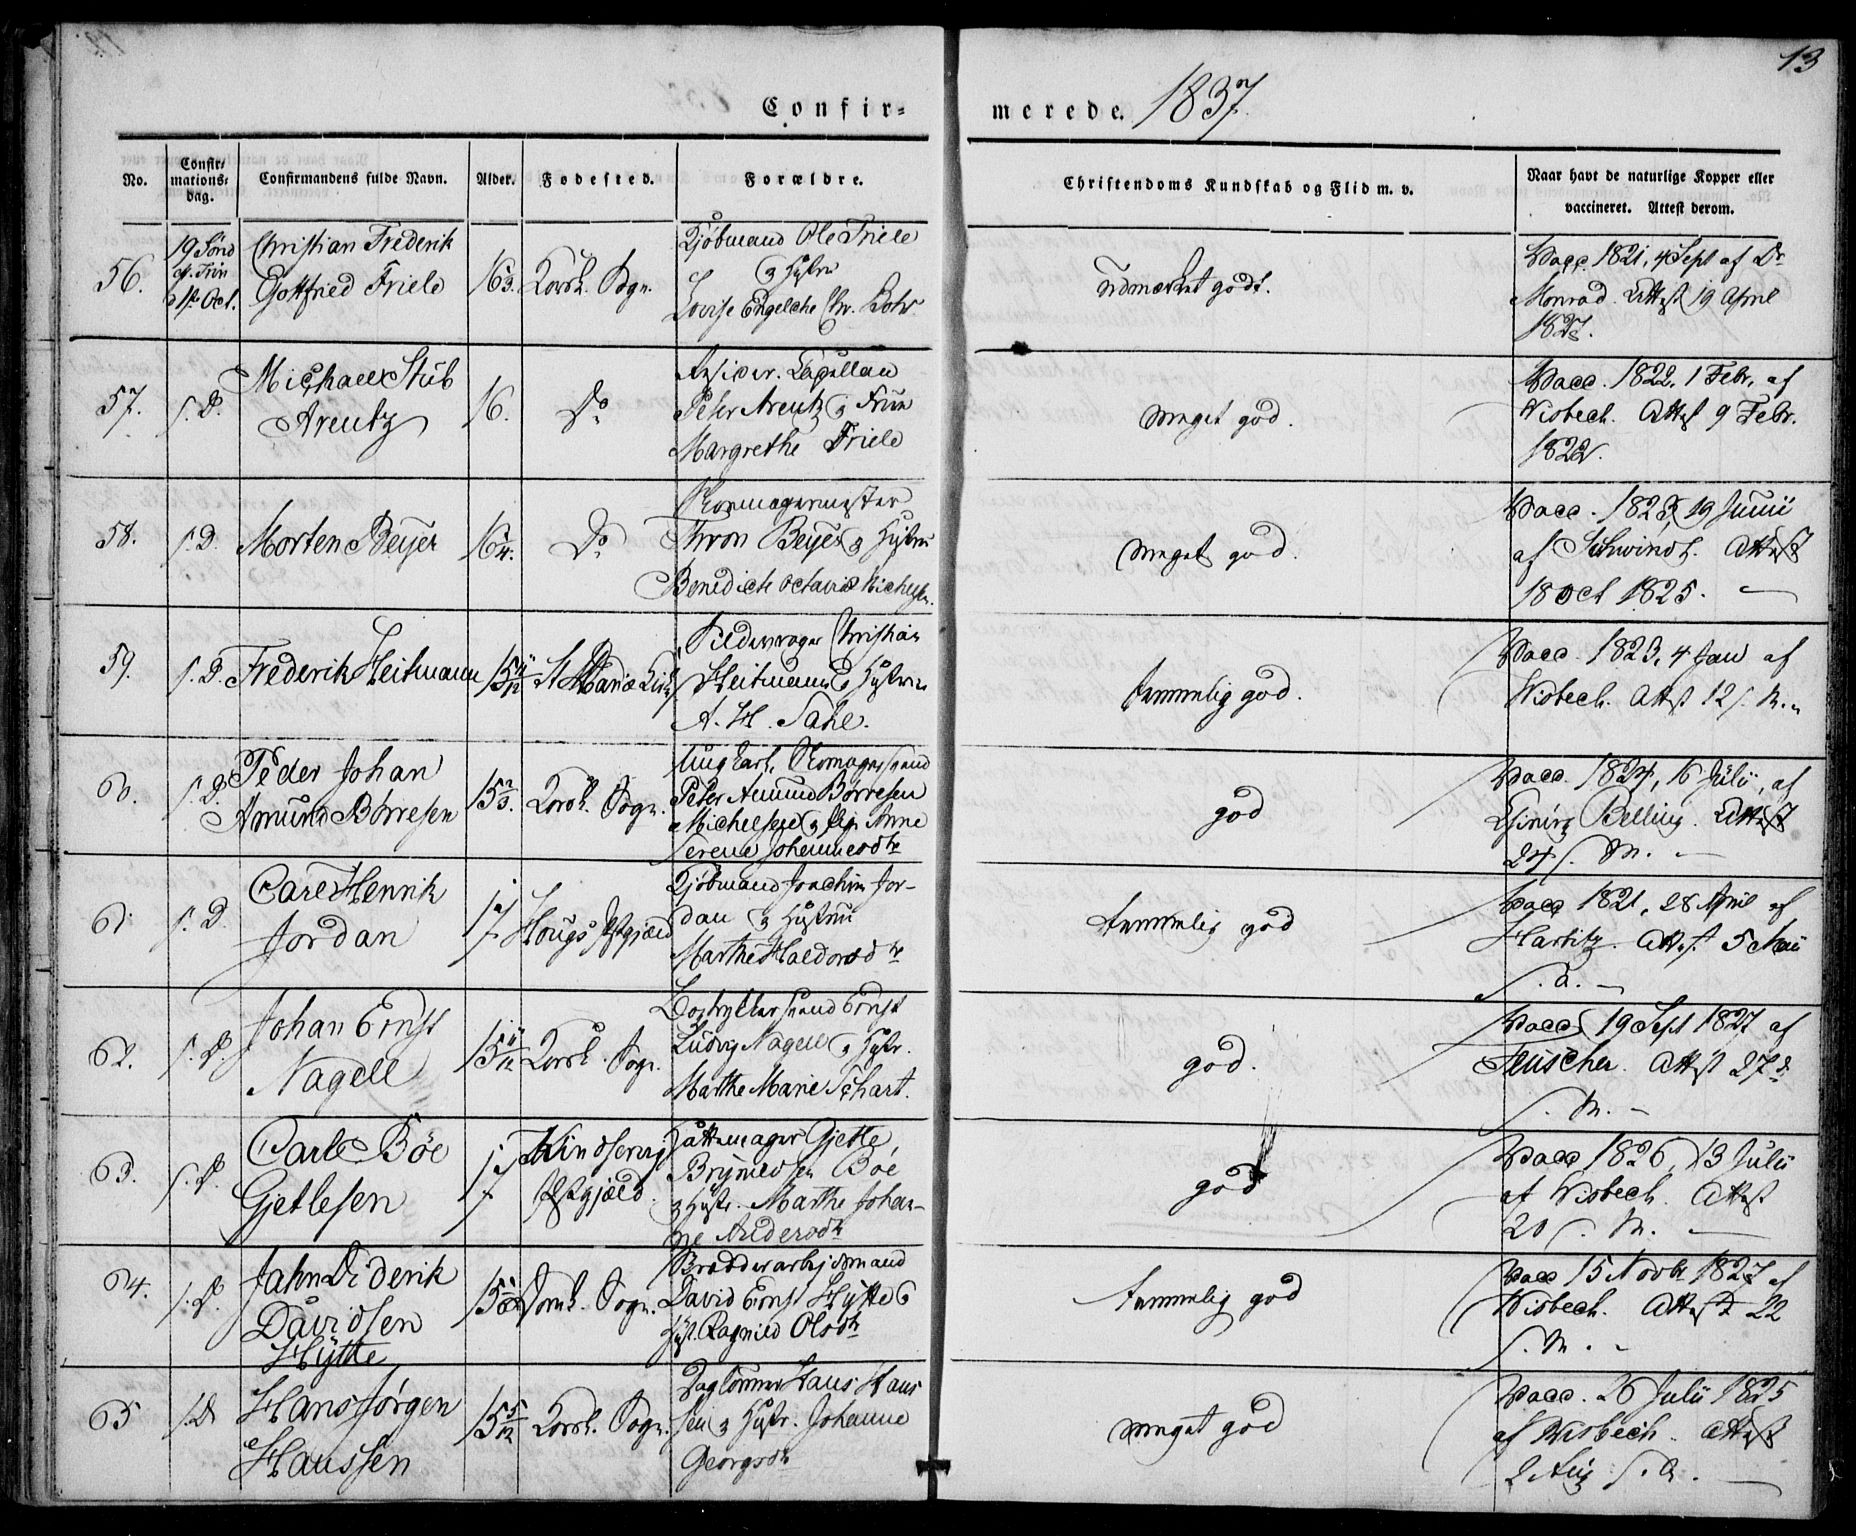 13
Confir-
merede. 1837.
No.
Confir-
mations-
dag.
Confirmandens fulde Navn.
Alder.
Fødested.
Forældre.
Christendoms Kundskab og Flid m. v.
Naar havt de naturlige Kopper eller
vaccineret. Attest derom.
56.
19 Sønd
ef. Trin
1st Oct.
Christian Frederik
Gottfried Friele
16
Korsk. Sogn.
Kjøbmand Ole Friele
& Hustru
Lovise Engelche Chr. Rohr
udmærket godt.
Vacc. 1821, 4 Sept af Dr
Monrad. Attest 19 April
57.
s. D.
Michael Stub
Arentz
16.
Do
Resider. Capellan
Peter Arentz & Frue
Margrethe Friele
meget god.
Vacc. 1822, 1 Febr. af
Wisbech. Attest 9 Febr.
1822.
58.
s. D.
Morten Beyer
16 1/4.
Do
Skomagermester
Thron Beyer & Hustru
Benedicte Octavia Michelsen.
meget god.
Vacc. 1823, 19 Junii
af Schwindt. Attest
18 Oct 1825.
59.
s. D.
Frederik Heitmann
15 11/12
St Mariæ Kirke
Christian
Heitmann & Hustrue
A. H. Dahl.
temmelig god.
Vacc. 1823, 4 Jan af
Wisbech. Attest 12 s. M.
60.
s. D.
Peder Johan
Amund Børresen
15 2/3.
Korsk. Sogn.
Ungkarl, Skomagersvend
Peter Amund Børresen
Michelsen & Pige Anne
Serene Johannesdtr
god
Vacc. 1824, 16 Julii, af
Chirurg Belling. Attest
24 s. M.
61
s. D.
Carl Henrik
Jordan
17
Hougs Pstgjæld
Kjøbmand Joachim Jor-
dan & Hustru
Marthe Haldorsdtr
temmelig god
Vacc 1821, 28 April af
Hartitz. Attest 5 Mai
s. A.
62.
s. D.
Johan Ernst
Nagel
15 11/12
Korsk. Sogn.
Ernst
Ludvig Nagel & Hustr.
Marthe Marie Schart.
god.
Vacc 19 Sept 1827 af
Teuscher. Attest 27 d
s. M.
63.
s. D.
Carl Bøe
Gjetlesen
17
Kindservig
Pstgjæld.
Hattemager Gjetle
Brynildsen Bøe
& Hustr. Marthe Johan-
ne Andersdtr
god
Vacc 1826, 13 Julii
af Wisbech. Attest
20 s. M.
64.
s. D.
Jahn Diderik
Davidsen
Hytte
15
Domk. Sogn.
Brødderarbejdsmand
David Ernst Hytte &
Hst. Ragnild Olsdtr
temmelig god
Vacc 15 Novbr 1827 af
Wisbech. Attest 22
s. M.
65
s. D
Hans Jørgen
Hanssen
15 5/12
Korsk. Sogn.
Daglønner Hans Han-
sen & Hustr. Johanne
Georgsdtr
meget god
Vacc. 26 Julii 1825
af Wisbech. Attest
2 Aug s. A.